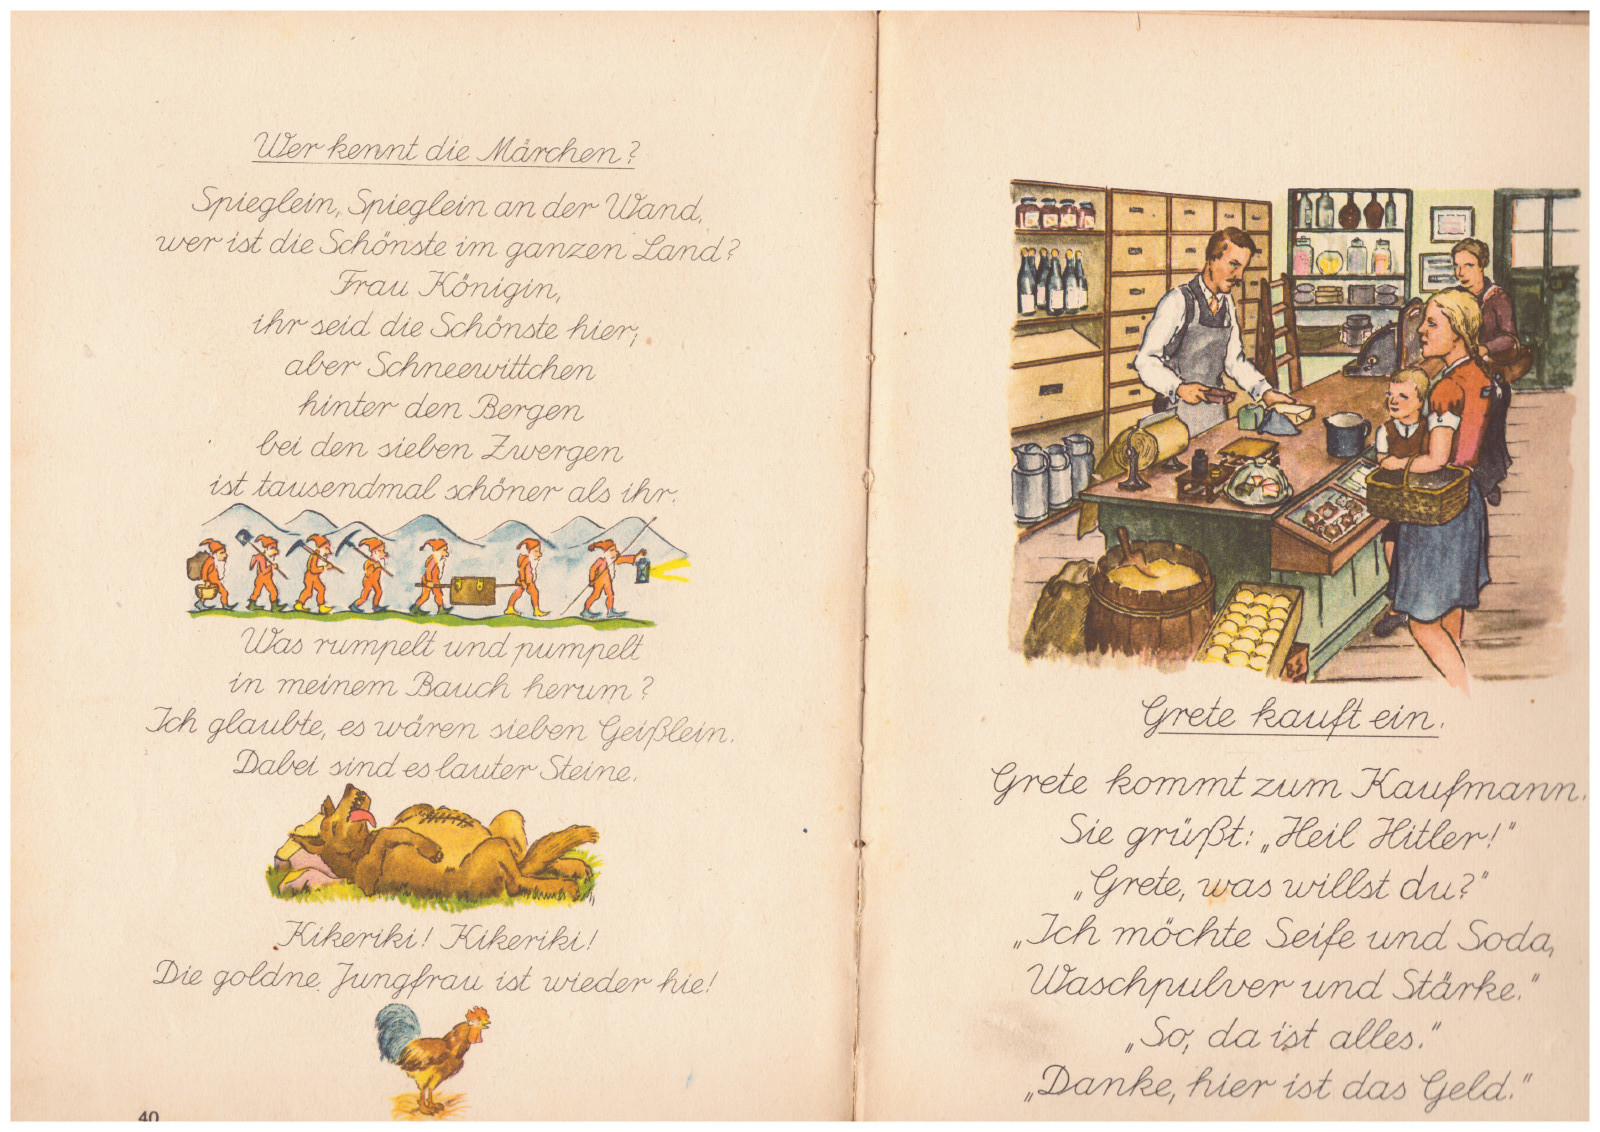 Wer kennt die Märchen?
Spieglein, Spieglein an der Wand,
wer ist die Schönste im ganzen Land?
Frau Königin,
ihr seid die Schönste hier;
aber Schneewittchen
hinter den Bergen
bei den sieben Zwergen
ist tausendmal schöner als ihr.
Was rumpelt und pumpelt
in meinem Bauch herum?
Ich glaubte, es wären sieben Geißlein.
Dabei sind es lauter Steine.
Kikeriki! Kikeriki!
Die goldne Jungfrau ist wieder hie!
40
BS
Grete kauft ein.
Grete kommt zum Kaufmann.
Sie grüßt: „Heil Hitler!“
„Grete, was willst du?“
„Ich möchte Seife und Soda,
Waschpulver und Stärke.“
„So, da ist alles.“
„Danke, hier ist das Geld.“